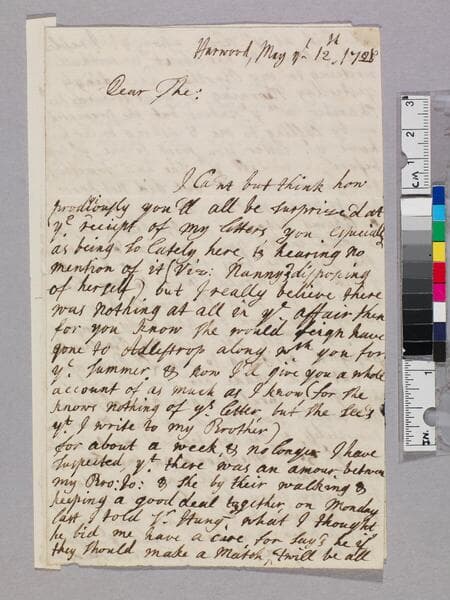 Harwood, May ye. 12th, 1728
Dear The:
I Cant but think how
prodiously you'll all be Surprized at
ye receipt of my letters you Especially
as being so lately here & hearing no
mention of it (Viz: Nanny's disposing
of herself) but I really believe there
was nothing at all in ye affair then
for you know She would feign have
gone to Odlestrop along with you for
ye Summer, & now I'll give you a whole
account of as much as I know (for She
knows nothing of ys letter, but She See's
yt I write to my Brother)
for about a week, & no longer I have
Suspected yt there was an amour between
my Bro: Jo: & She by their walking &
keeping a good deal together, on Monday
last I told Sr. Hung: what I thought
he, bid me have a care for Say's he if
they Should make a Match, 'twill be all
CM 1 2 3
IN. 1